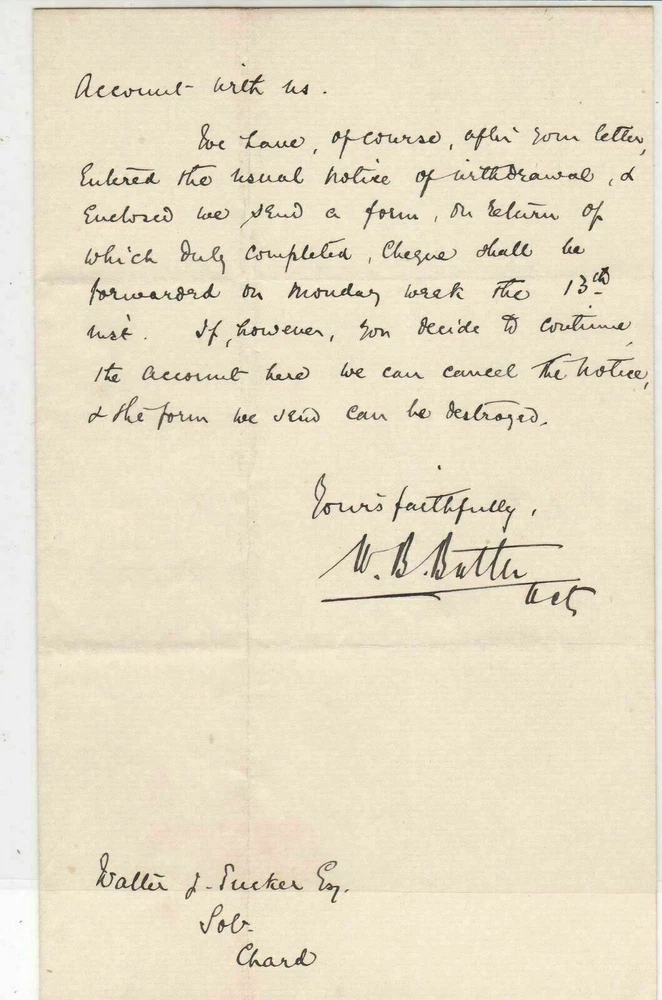 Account with us.
We have, of course, after your letter,
Entered the usual notice of withdrawal, &
Enclosed we send a form, on return of
which duly completed, Cheque shall be
forwarded on Monday week the 13th
inst. If, however, you decide to continue
the account here we can cancel the notice,
& the form we send can be destroyed.
Yours faithfully,
W. B. Butler
Walter J. Tucker Esq.
Solr.
Chard